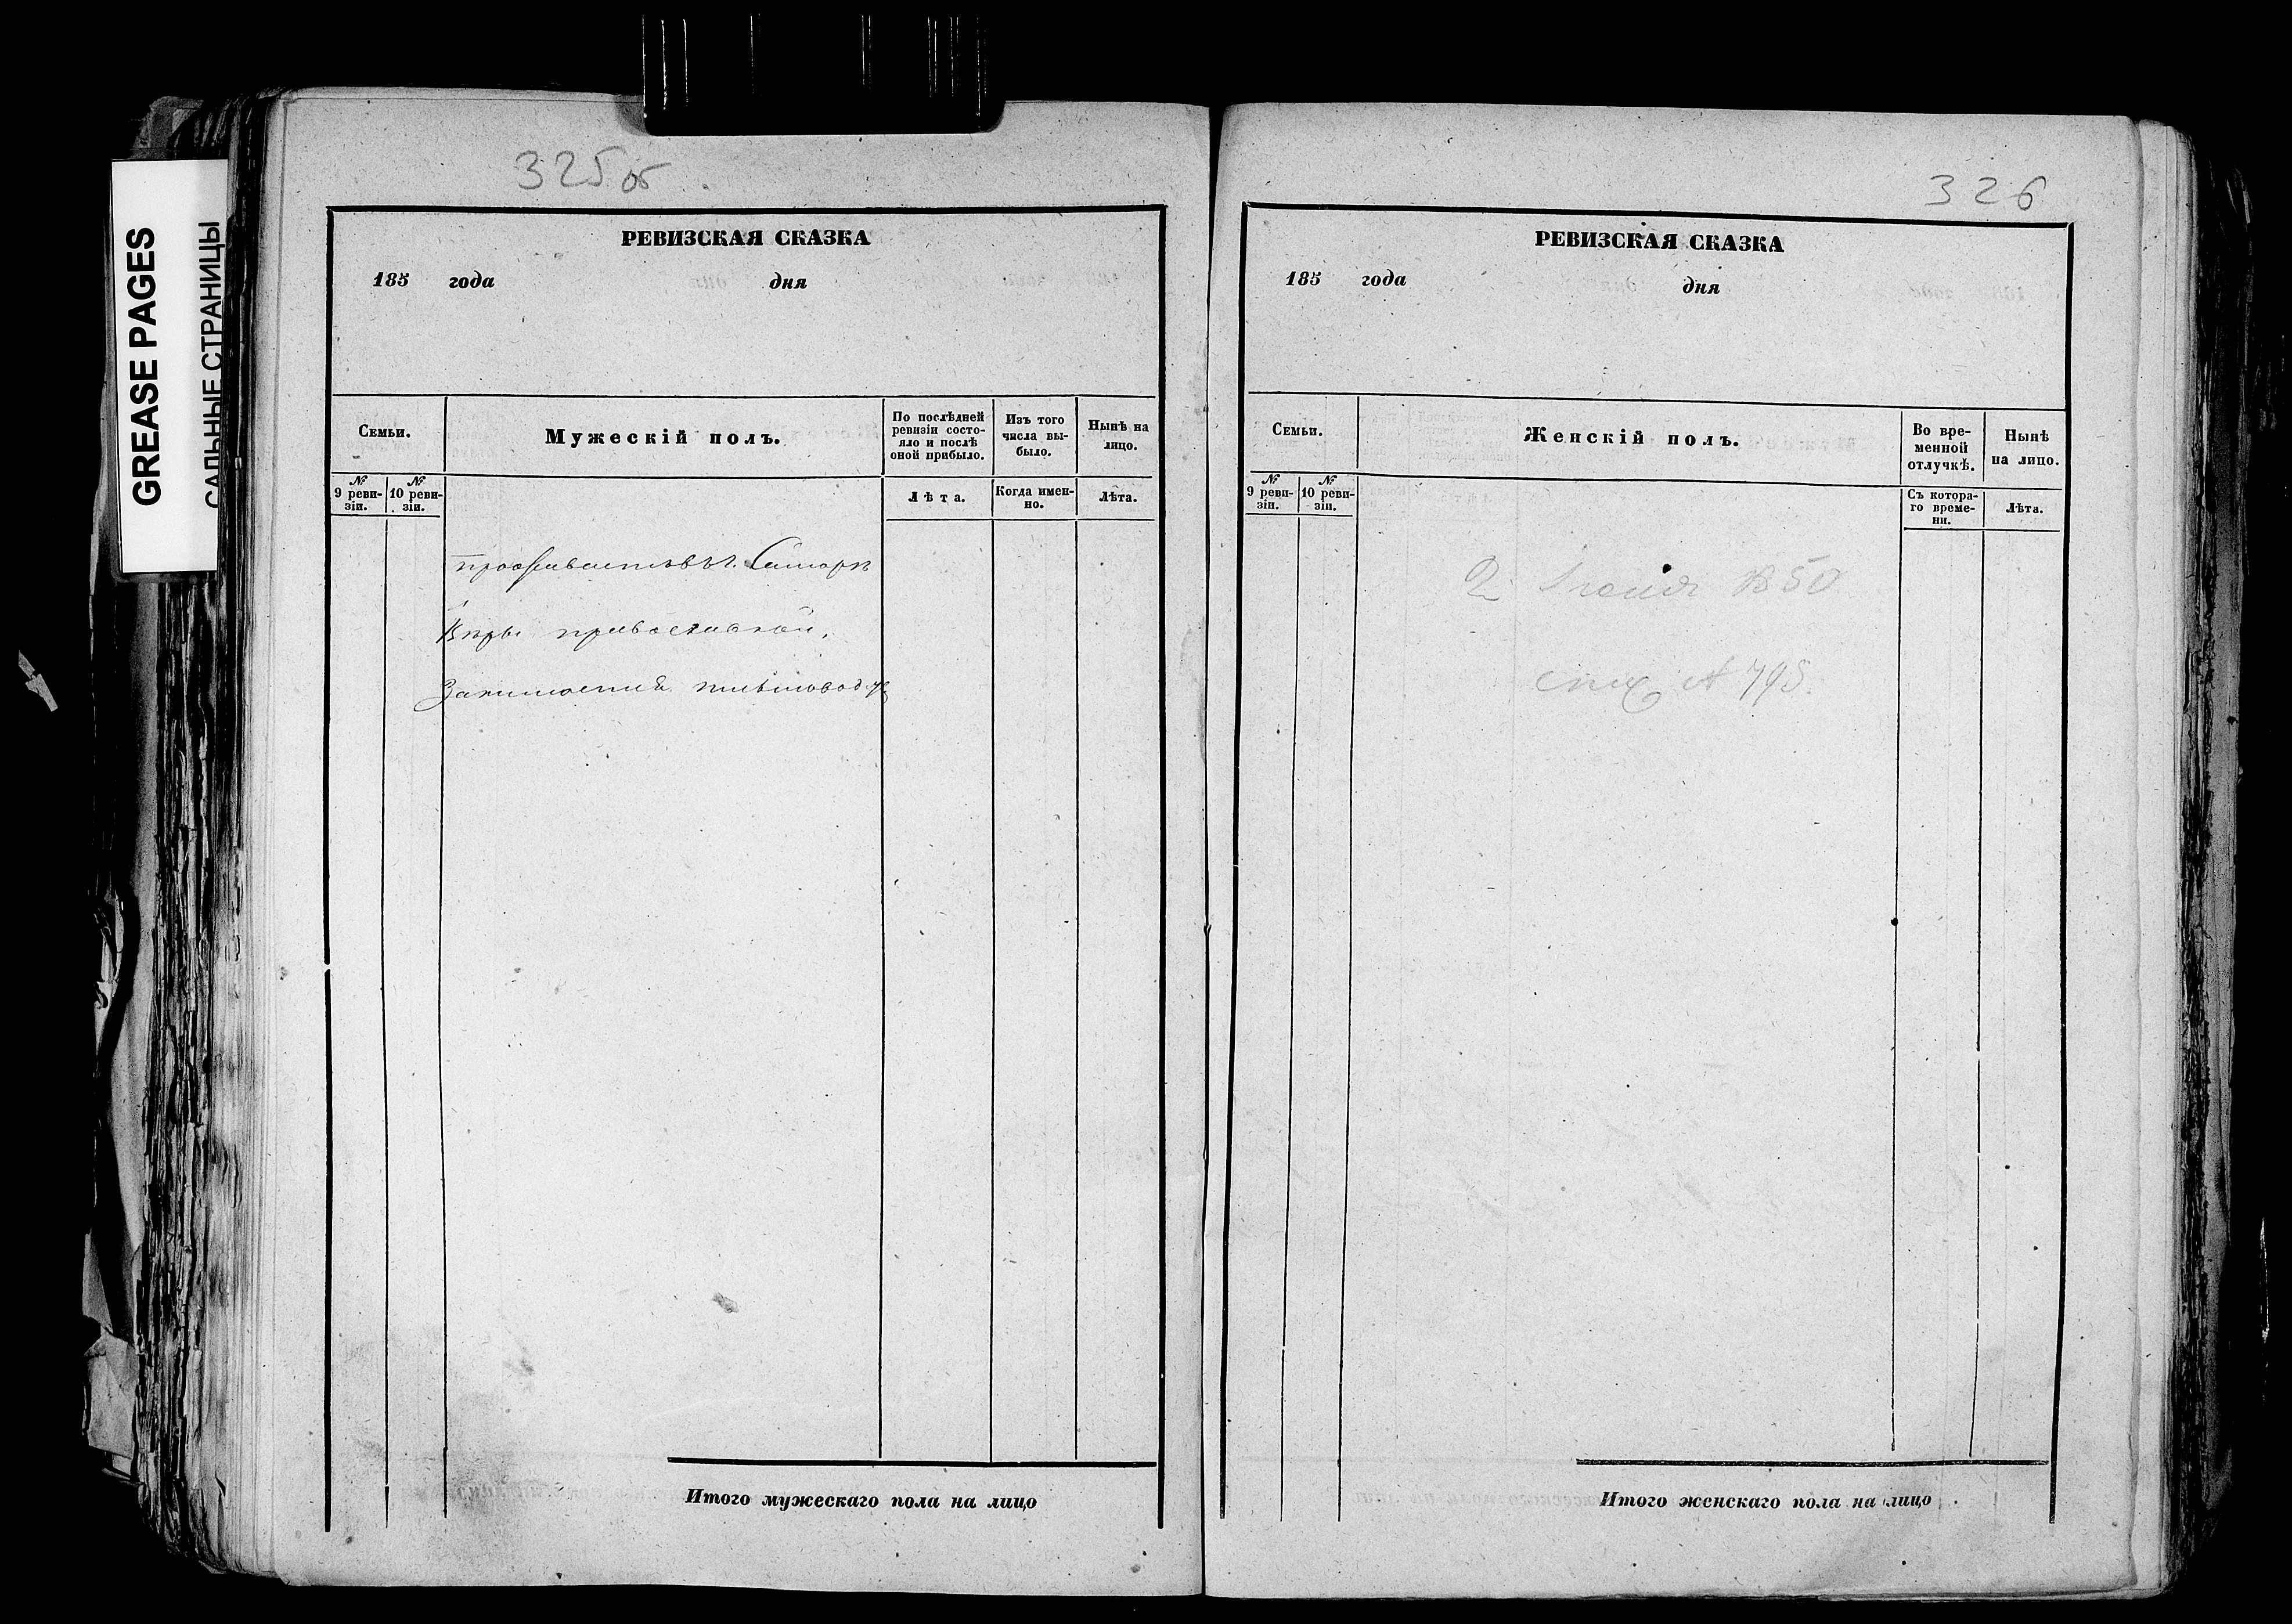 GREASE PAGES
САЛЬНЫЕ СТРАНИЦЫ
325об
РЕВИЗСКАЯ СКАЗКА
185 года дня
Семьи.
Мужескій полъ.
По послѣдней
ревизіи состо-
яло и послѣ
оной прибыло.
Изъ того
числа вы-
было.
Нынѣ на
лицо.
№
9 реви-
зіи.
№
10 реви-
зіи.
Лѣта.
Когда имен-
но.
Лѣта.
проживаетъ въ г. Самарѣ
Вѣры православной,
Занимается
Итого мужескаго пола на лицо
326
РЕВИЗСКАЯ СКАЗКА
185 года дня
Семьи.
Женскій полъ.
Во вре-
менной
отлучкѣ.
Нынѣ
на лицо.
№
9 реви-
зіи.
№
10 реви-
зіи.
Съ котора-
го време-
ни.
Лѣта.
2 50
795.
Итого женскаго пола на лицо